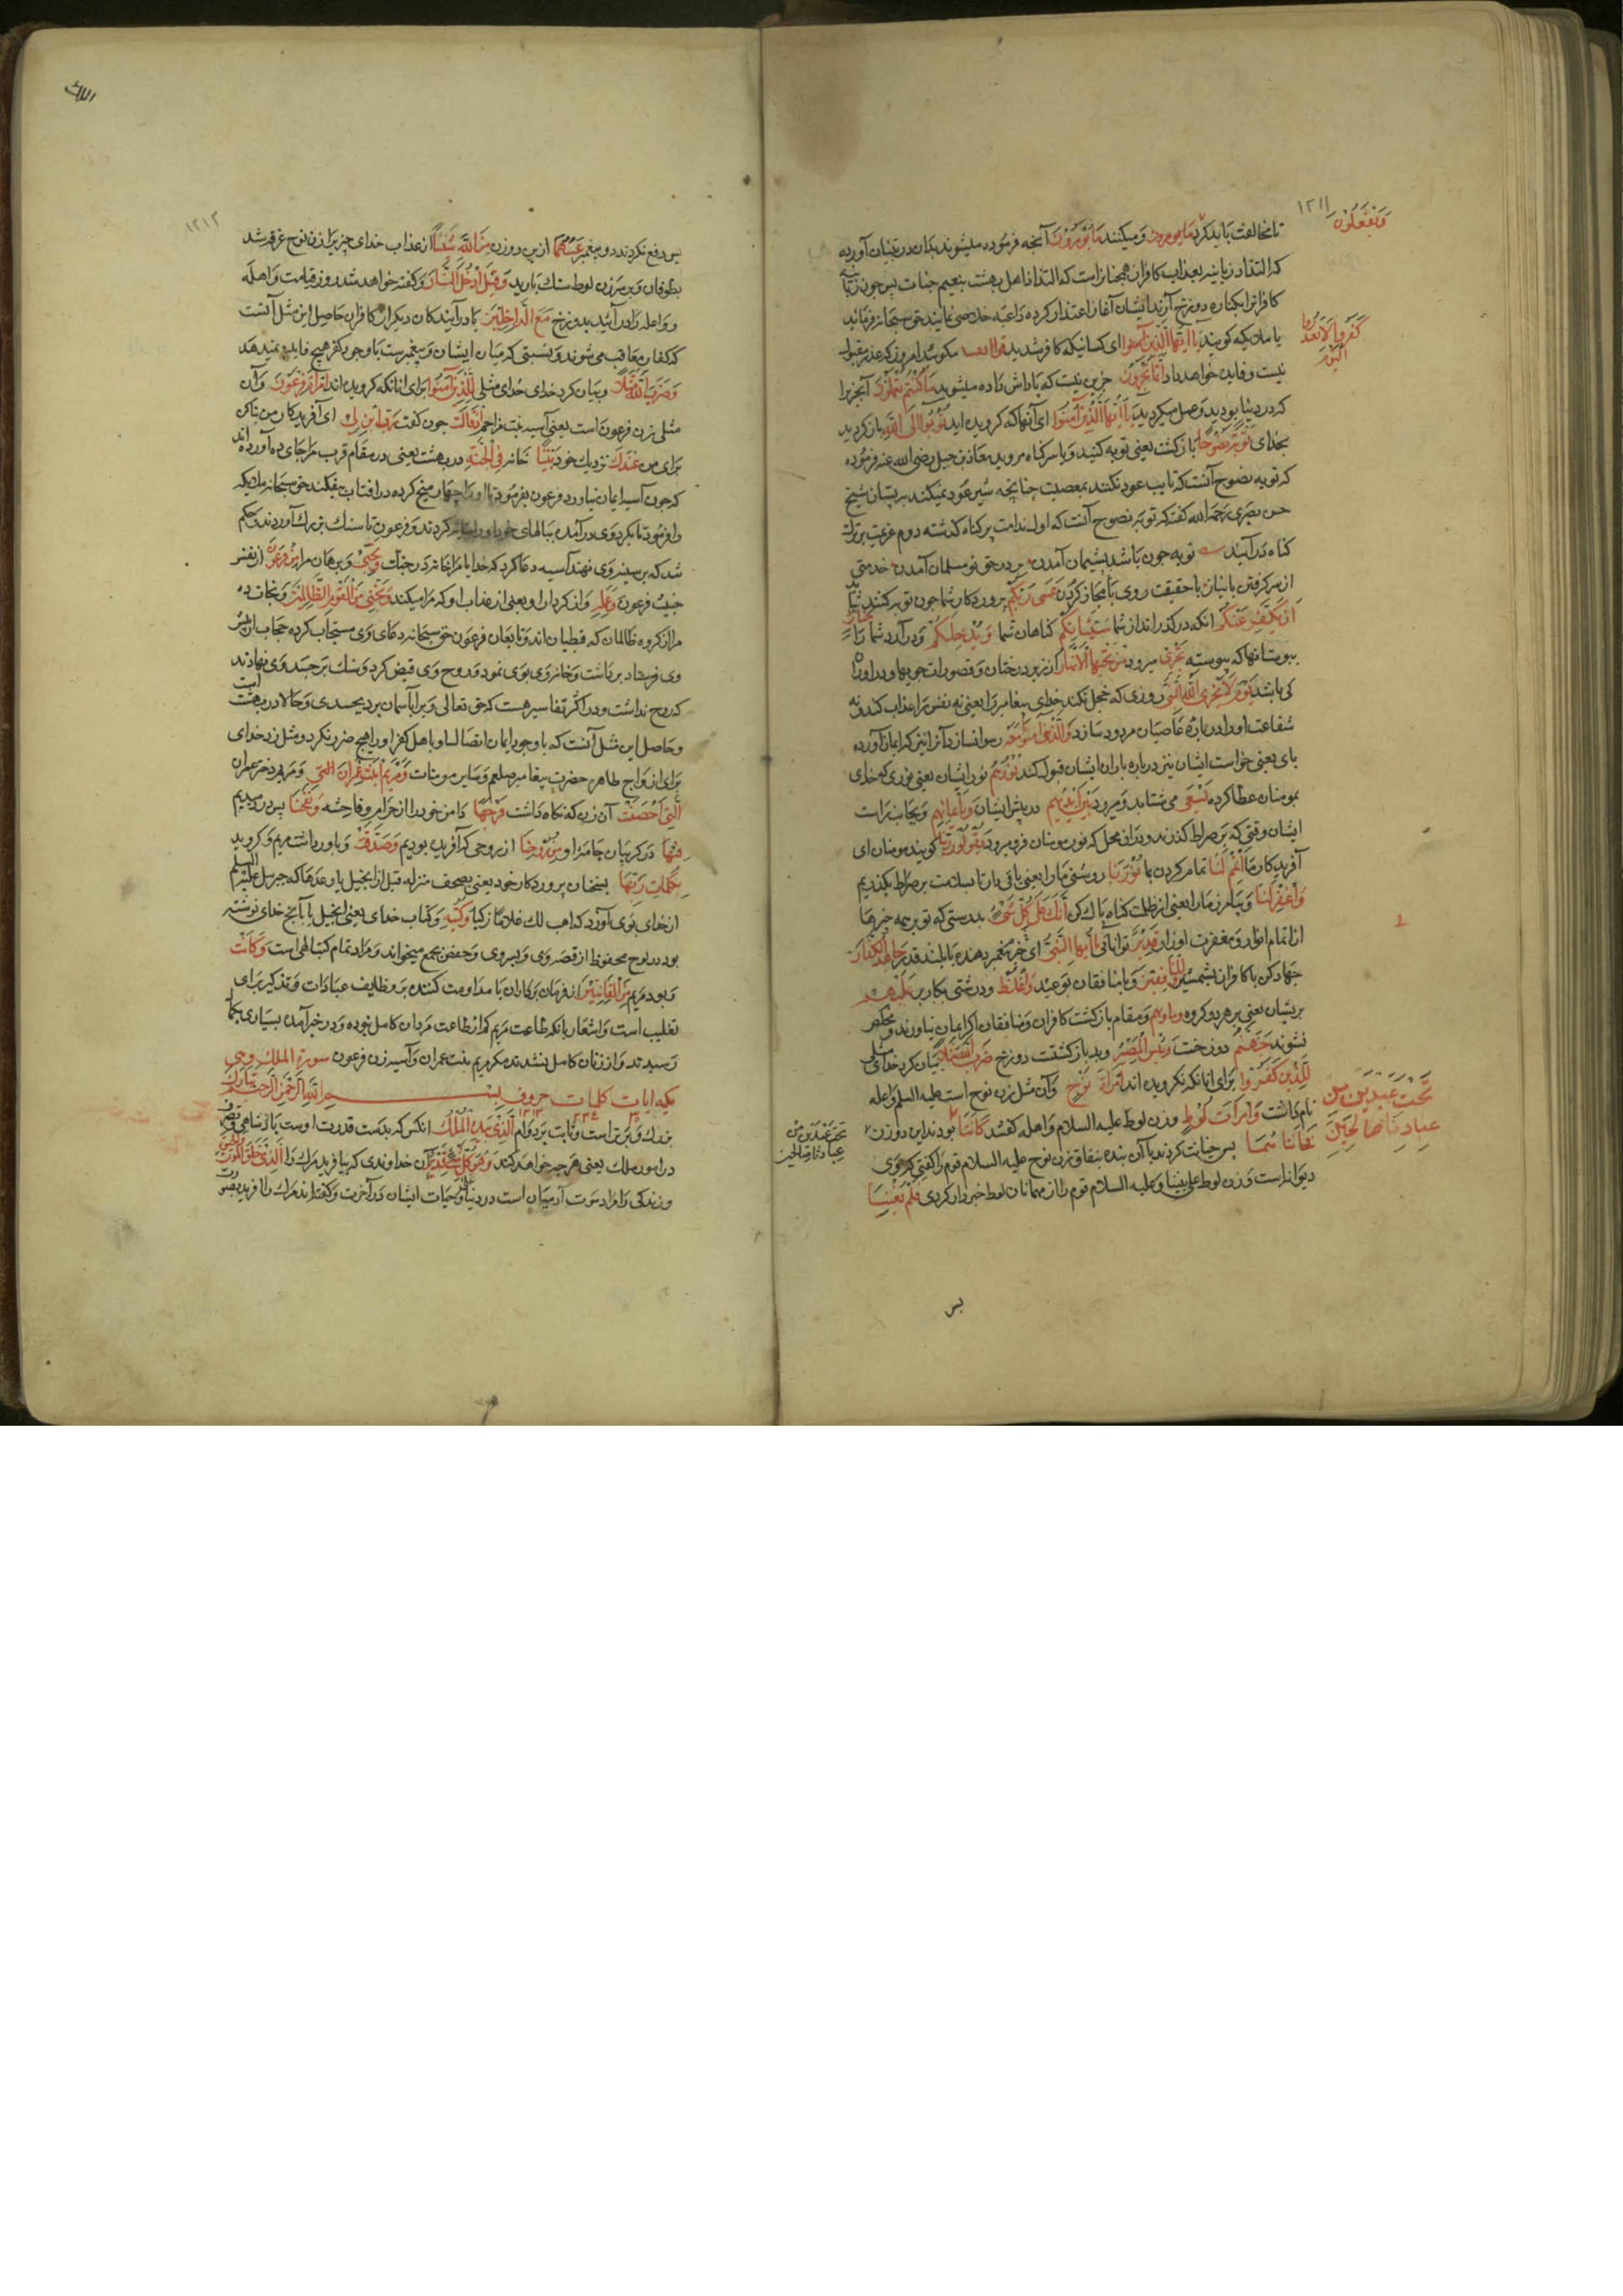 وَیَفْعَلُوْنَ
١٢١١
تا مخالفت باید کرد ما یومرون و میکنند مَا یُؤمَرُوْنَ آنچه فرموده میشوند بدان در تبیان آورده
که التذاذ زبانیه بعذاب کافران همچنانست که التذاذ اهل بهشت بنعیم جنات پس چون زبانیه
کافرانرا بکناره دوزخ آرند ایشان آغاز اعتذار کرده داعیه خلاصی نمایند حق سبحانه فرماید
یا ملائکه گویند یَا اَیُّهَا الَّذِیْنَ ای کسانیکه کافر شدید مگوئید امروز که عذر مقبول
کَفَرُوا لَا تَعْتَذِرُوا الْیَوْمَ
نیست و فایده نخواهد داد اِنَّمَا تُجْزَوْنَ جزین نیست که پاداش داده میشوید مَا کُنْتُمْ تَعْمَلُوْنَ آنچیز را
که در دنیا بودید و عمل میکردید یَا اَیُّهَا الَّذِیْنَ آمَنُوْا ای آنها که گرویده اید تُوْبُوْا اِلَی اللّٰهِ باز گردید
بخدای تَوْبَةً نَصُوْحًا بازگشت یعنی توبه کنید و با سر گناه مروید معاذ بن جبل رضی الله عنه فرموده
که توبه نصوح آنست که تایب عود نکند بمعصیت چنانچه شیر عود نمیکند به پستان شیخ
حسن بصری رحمه الله گفته که توبه نصوح آنست که اول ندامت بر گناه گذشته دوم عزیمت بر ترک
گناه در آینده توبه چون باشد پشیمان آمدن بر در حق نو مسلمان آمدن خدمتی
از سر گرفتن با نیاز با حقیقت روی با مجاز کردن عَسٰی رَبُّکُمْ پروردگار شما چون توبه کنید شاید
اَنْ یُکَفِّرَ عَنْکُمْ آنکه در گذراند از شما سَیِّئَاتِکُمْ گناهان شما وَ یُدْخِلَکُمْ و درآرد شما را جَنّٰتٍ
ببوستانها که پیوسته تَجْرِیْ میرود مِنْ تَحْتِهَا الْاَنْهَارُ از زیر درختان و قصور آن جویها
کی باشد یَوْمَ لَا یُخْزِی اللّٰهُ النَّبِیَّ روزی که خجل نکند خدای پیغامبر را یعنی نه نفس مرا عذاب کند و نه
شفاعت او را در باره عاصیان مردود سازد وَالَّذِیْنَ اٰمَنُوْا مَعَهٗ و رسوا نسازد آنرا نیز که ایمان آورده
بای یعنی خواست ایشان نیز درباره یاران ایشان قبول کند نُوْرُهُمْ نور ایشان یعنی نوری که خدای
بمومنان عطا کرده یَسْعٰی می شتابد و میرود بَیْنَ اَیْدِیْهِمْ در پیش ایشان وَبِاَیْمَانِهِمْ و بجانب راست
ایشان وقتی که بر صراط گذرند یَقُوْلُوْنَ رَبَّنَا گویند مومنان ای
آفریدگار ما اَتْمِمْ لَنَا تمام گردان بما نُوْرَنَا روشنی ما را یعنی باقی دار تا بسلامت بر صراط بگذریم
وَاغْفِرْ لَنَا و بیامرز ما را یعنی از ظلمت گناه پاک کن اِنَّکَ عَلٰی کُلِّ شَیْءٍ بدرستی که تو بر همه چیزها
از اتمام انوار و مغفرت اوزار قَدِیْرٌ توانائی یَا اَیُّهَا النَّبِیُّ ای پیغمبر بلند قدر جَاهِدِ الْکُفَّارَ
جهاد کن با کافران بشمشیر وَالْمُنَافِقِیْنَ و با منافقان بوعید وَاغْلُظْ و درشتی بکار بر عَلَیْهِمْ
بریشان یعنی بر هر دو گروه وماویهم و مقام بازگشت کافران و منافقان اگر ایمان نیاورند و مخلص
نشوند جَهَنَّمُ دوزخست وَبِئْسَ الْمَصِیْرُ و بد بازگشتست دوزخ ضَرَبَ اللّٰهُ مَثَلًا بیان کرد خدای مثلی
لِلَّذِیْنَ کَفَرُوا برای آنانکه نگرویده اند امْرَاَةَ نُوْحٍ و آن مثل زن نوح است علیه السلم واعله
نام داشت وَامْرَاَتَ لُوْطٍ و زن لوط علیه السلام واهله گفتند کَانَتَا بودند این دو زن
تَحْتَ عَبْدَیْنِ مِنْ عِبَادِنَا صَالِحَیْنِ
تحت عبدین من عبادنا صالحین
فَخَانَتَاهُمَا پس خیانت کردند با آن بنده بنفاق زن نوح علیه السلام قوم را گفتی که وی
دیوانه است و زن لوط علی نبینا و علیه السلام قوم را از مهمانان لوط خبردار کردی فَلَمْ یُغْنِیَا
پس
١٢١٢
پس دفع نکردند دو پیغمبر عَنْهُمَا ازین دو زن مِنَ اللّٰهِ شَیْئًا از عذاب خدای چیزی را زن نوح غرقه شد
بطوفان و بر سر زن لوط سنک بارید وَقِیْلَ ادْخُلَا النَّارَ و گفته خواهد شد روز قیامت واهله
و واعله را درآئید بدوزخ مَعَ الدَّاخِلِیْنَ با درآیندگان دیگر از کافران حاصل این مثل آنست
که کفار معاقب می شوند و نسبتی که میان ایشان و پیغمبرست با وجود کفر هیچ فایده نمیدهد
وَضَرَبَ اللّٰهُ مَثَلًا و بیان کرد خدای مثلی لِلَّذِیْنَ آمَنُوا برای آنانکه گرویده اند امْرَاَةَ فِرْعَوْنَ و آن
مثل زن فرعون است یعنی آسیه بنت مزاحم اِذْ قَالَتْ چون گفت رَبِّ ابْنِ لِیْ ای آفریدگار من بنا کن
برای من عِنْدَکَ نزدیک خود بَیْتًا خانه فِی الْجَنَّةِ در بهشت یعنی در مقام قرب مرا جای ده آورده اند
که چون آسیه ایمان بیاورد فرعون بفرمود تا او را چهار میخ کرده در افتاب بیفکنند حق سبحانه ملائکه
را فرمود تا بگرد وی درآمده ببالهای خود او را سایه کردند و فرعون تا سنک بزرگ آوردند و حکم
شد که بر سینه وی نهند آسیه دعا کرد که خدایا مرا خانه در جنات وَنَجِّنِیْ و برهان مرا مِنْ فِرْعَوْنَ از نفس
خبیث فرعون وَعَمَلِهٖ و از کردار او یعنی از عذاب او که مرا میکند وَنَجِّنِیْ مِنَ الْقَوْمِ الظّٰلِمِیْنَ و نجات ده
مرا از گروه ظالمان که قبطیان اند و تابعان فرعون حق سبحانه دعای وی مستجاب کرده حجاب از پیش
وی برداشت و خانه وی بوی نمود و روح وی قبض کرد و سنک بر جسد وی نهادند
که روح نداشت و در اکثر تفاسیر هست که حق تعالی ویرا بآسمان برد بجسدی و حالا در بهشت است
و حاصل این مثل آنست که با وجود ایمان اتصال او با اهل کفر او را هیچ ضرر نکرد و مثل زد خدای
برای ازواج طاهره حضرت پیغامبر صلعم و سایر مومنات وَمَرْیَمَ ابْنَتَ عِمْرَانَ الَّتِیْ و مریم دختر عمران
الَّتِیْ اَحْصَنَتْ آن زن که نگاه داشت فَرْجَهَا دامن خود را از حرام و فاحشه فَنَفَخْنَا پس دردمیدیم
فِیْهَا در گریبان جامه او مِنْ رُّوْحِنَا از روحی که آفریده بودیم وَصَدَّقَتْ و باور داشت مریم و گروید
بِکَلِمٰتِ رَبِّهَا بسخنان پروردگار خود یعنی بصحف منزله قبل از انجیل یا وعدها که جبرئیل علیه السلم
از خدای بوی آورد که لاهب لک غلاما زکیا وَکُتُبِهٖ و کتاب خدای یعنی انجیل یا بآنچ خدای نوشته
بود در لوح محفوظ از قصه وی و پسر وی و حفص بجمع میخواند و مراد تمام کتب الهی است وَکَانَتْ
و بود مریم مِنَ الْقَانِتِیْنَ از فرمان برداران یا مداومت کنندهٔ بر وظایف عبادات و تذکیر برای
تغلیب است و اشعار بانکه طاعت مریم کم از طاعت مردان کامل نبوده و در خبر آمده بسیاری بکمال
رسیدند و از زنان کامل نشدند مگر مریم بنت عمران و آسیه زن فرعون سورة الملک وهی
مکیه ایات کلمات حروف بسم الله الرحمن الرحیم تَبَارَکَ
٣٠ ٣٣٥ ١٣١٣
بزرک و برتر است و ثابت بر دوام الَّذِیْ بِیَدِهِ الْمُلْکُ آنکس که بدست قدرت اوست پادشاهی و تصرف
در امور ملک یعنی هر چه خواهد کند وَهُوَ عَلٰی کُلِّ شَیْءٍ قَدِیْرٌ آن خداوندی که بیافرید مرک را الَّذِیْ خَلَقَ الْمَوْتَ
و زندگی را مراد موت آدمیان است در دنیا و حیات ایشان در آخرت و گفته اند مرک را آفرید بصورت